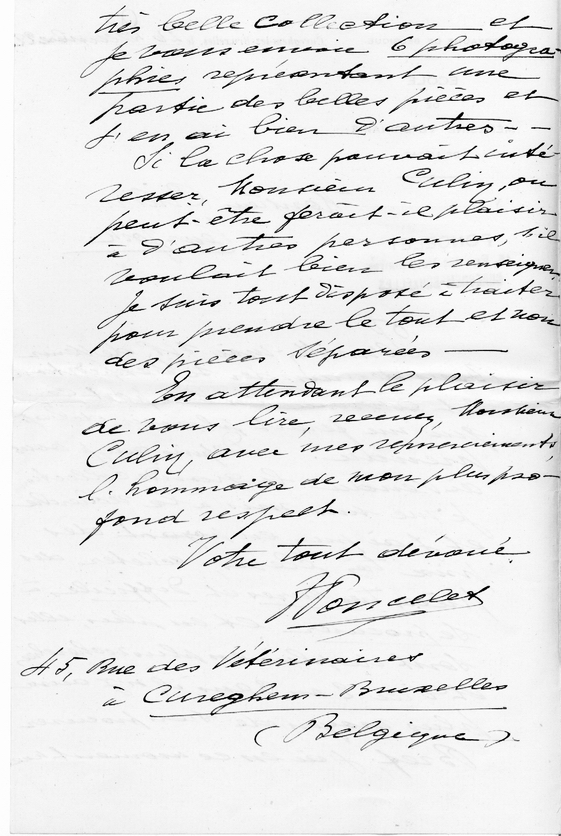 très belle collection et
je vous envoie 6 photogra-
phies représentant une
partie des belles pièces et
j'en ai bien d'autres - -
Si la chose pouvait inté-
resser, Monsieur Culin, ou
peut-être ferait-il plaisir
à d'autres personnes, s'il
voulait bien les renseigner
je suis tout disposé à traiter
pour prendre le tout et non
des pièces séparées —
En attendant le plaisir
de vous lire, recevez, Monsieur
Culin, avec mes remerciements,
l'hommage de mon plus pro-
fond respect.
Votre tout dévoué.
Poncelet
45, Rue des Vétérinaires
à Cureghem - Bruxelles
(Belgique).